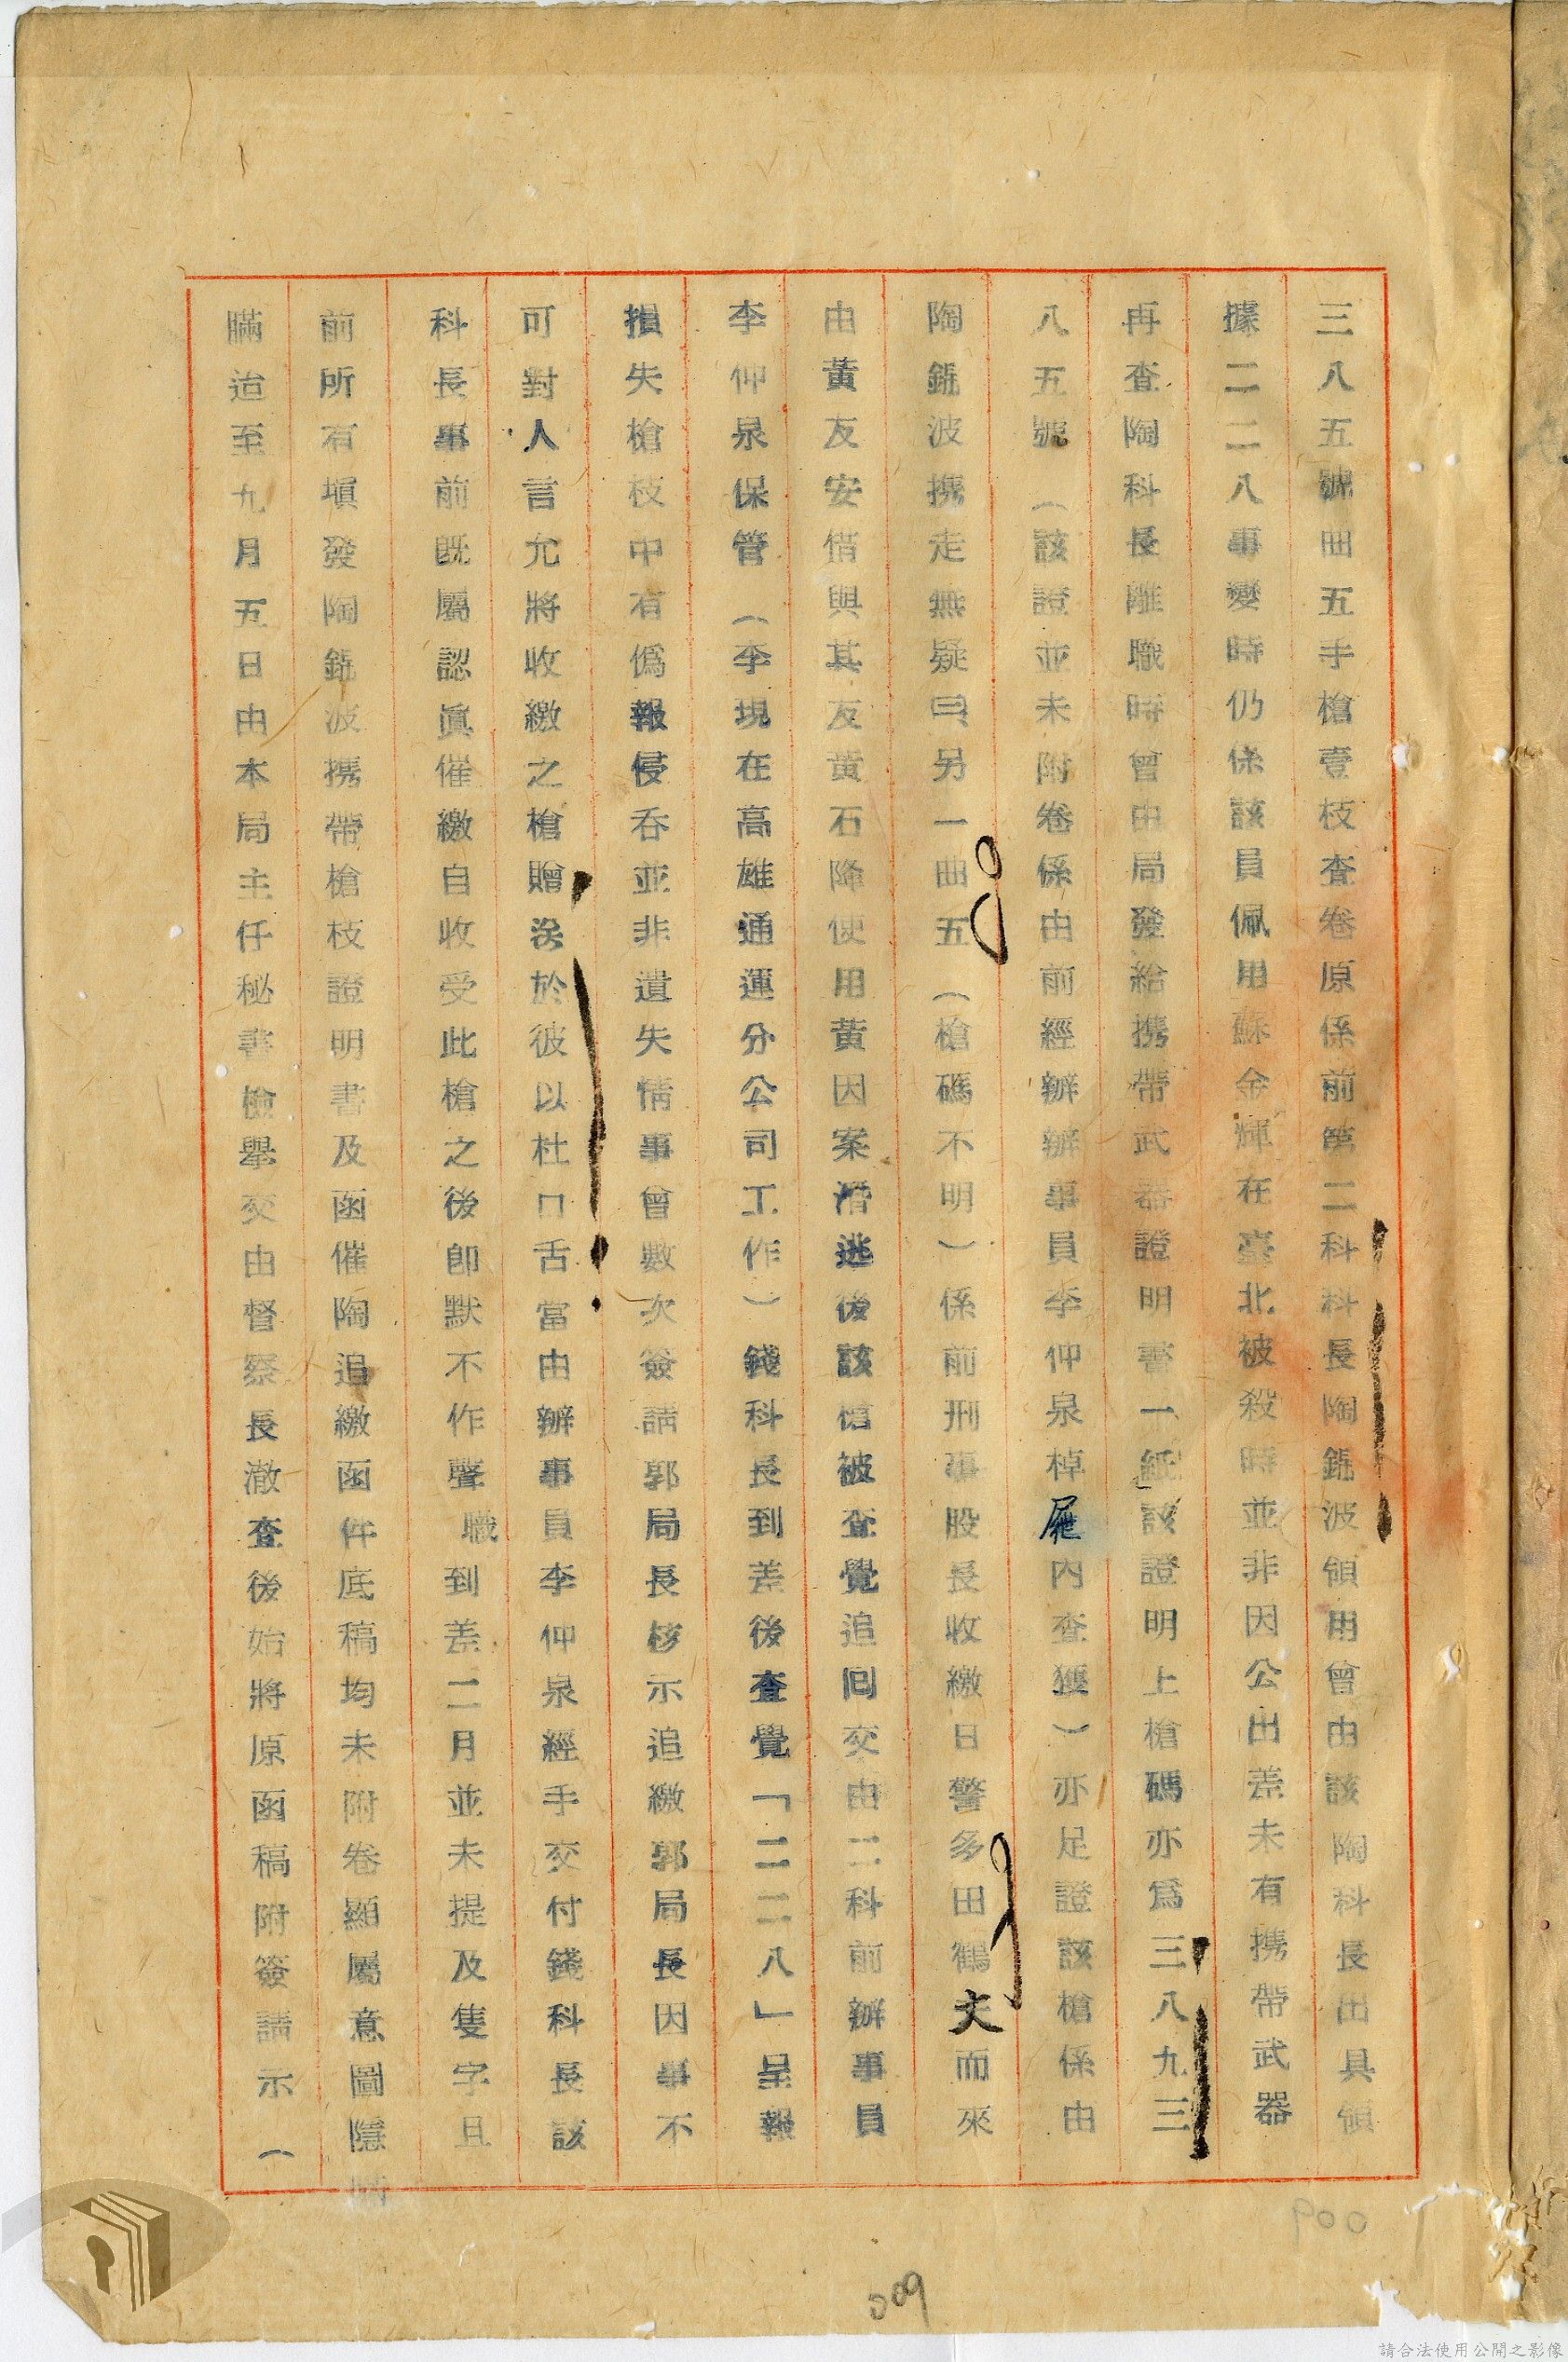 三八五號曲五手槍壹枝查卷原係前第二科科長陶錕波領用曾由該陶科長出具領
據二二八事變時仍係該員佩用蘇金輝在臺北被殺時並非因公出差未有携帶武器
再查陶科長離職時曾由局發給携帶武器證明書一紙該證明上槍碼亦爲三八九三
八五號（該證並未附卷係由前經辦辦事員李仲泉棹屜內查獲）亦足證該槍係由
陶錕波携走無疑另一曲五（槍碼不明）係前刑事股長收繳日警多田鶴夫而來
由黃友安借與其友黃石降使用黃因案潛逃後該槍被查覺追回交由二科前辦事員
李仲泉保管（李現在高雄通運分公司工作）錢科長到差後查覺「二二八」呈報
損失槍枝中有僞報侵吞並非遺失情事曾數次簽請郭局長核示追繳郭局長因事不
可對人言允將收繳之槍贈送於彼以杜口舌當由辦事員李仲泉經手交付錢科長該
科長事前既屬認眞催繳自收受此槍之後卽默不作聲職到差二月並未提及隻字且
前所有塡發陶錕波携帶槍枝證明書及函催陶追繳函件底稿均未附卷顯屬意圖隱瞞
瞞迨至九月五日由本局主任秘書檢舉交由督察長澈查後始將原函稿附簽請示（
009
009
請合法使用公開之影像